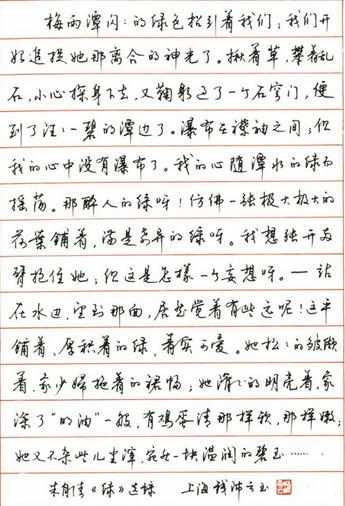 梅雨潭闪:的绿色招引着我们;我们开
始追捉她那离合的神光了。揪着草,攀着乱
石,小心探身下去,又鞠躬过了一个石穹门,便
到了汪:一碧的潭边了。瀑布在襟袖之间;但
我的心中没有瀑布了。我的心随潭水的绿而
摇荡。那醉人的绿呀!仿佛一张极大极大的
荷叶铺着,满是奇异的绿呀。我想张开两
臂抱住她;但这是怎样一个妄想呀。—站
在水边,望到那面,居然觉着有些远呢!这平
铺着,厚积着的绿,着实可爱。她松:的皱缬
着,象少妇拖着的裙幅;她滑:的明亮着,象
涂了“明油”一般,有鸡蛋清那样软,那样嫩;
她又不杂些儿尘滓,宛如一块温润的碧玉……
朱自清《绿》选录 上海钱沛云书